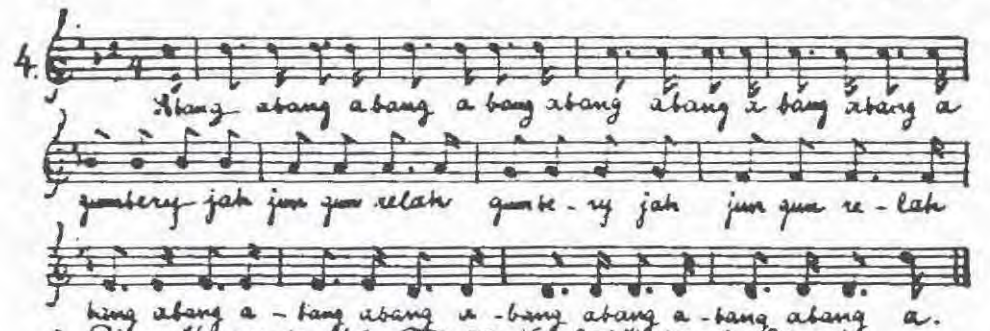 4.
Abang abang abang a bang abang abang a bang abang a
gumbery jah jun gun relah gumbe - ry jah jun gun re - lah
bang abang a - bang abang a - bang abang a - bang abang a.